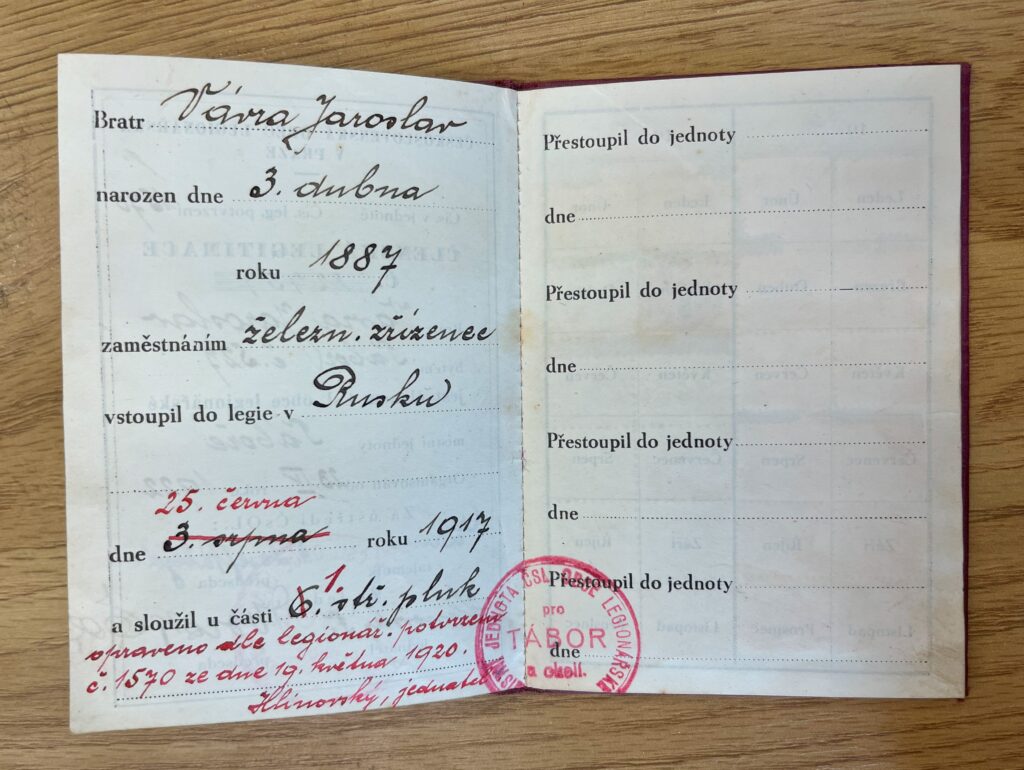 Bratr Vávra Jaroslav
narozen dne 3. dubna
roku 1887
zaměstnáním železn. zřízenec
vstoupil do legie v Rusku
25. června
dne 3. srpna roku 1917
1.
a sloužil u části 6. stř. pluk
opraveno dle legionář. potvrzení
č. 1570 ze dne 19. května 1920.
Hlinovský, jednatel
Přestoupil do jednoty
dne
Přestoupil do jednoty
dne
Přestoupil do jednoty
dne
Přestoupil do jednoty
dne
JEDNOTA ČSL. OBCE LEGIONÁŘSKÉ
pro
TÁBOR
a okolí.